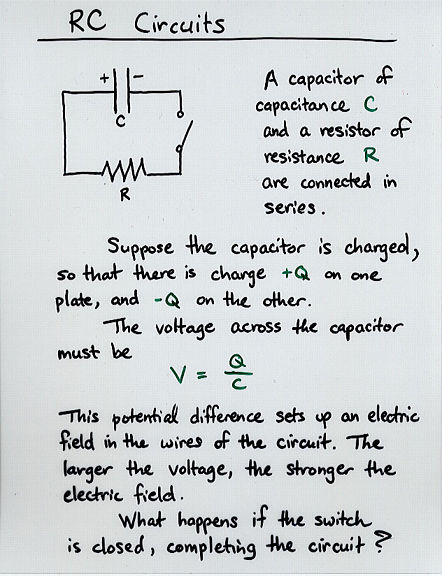 RC Circuits
+ -
C
R
A capacitor of
capacitance C
and a resistor of
resistance R
are connected in
series.
Suppose the capacitor is charged,
so that there is charge +Q on one
plate, and -Q on the other.
The voltage across the capacitor
must be
V = Q/C
This potential difference sets up an electric
field in the wires of the circuit. The
larger the voltage, the stronger the
electric field.
What happens if the switch
is closed, completing the circuit?